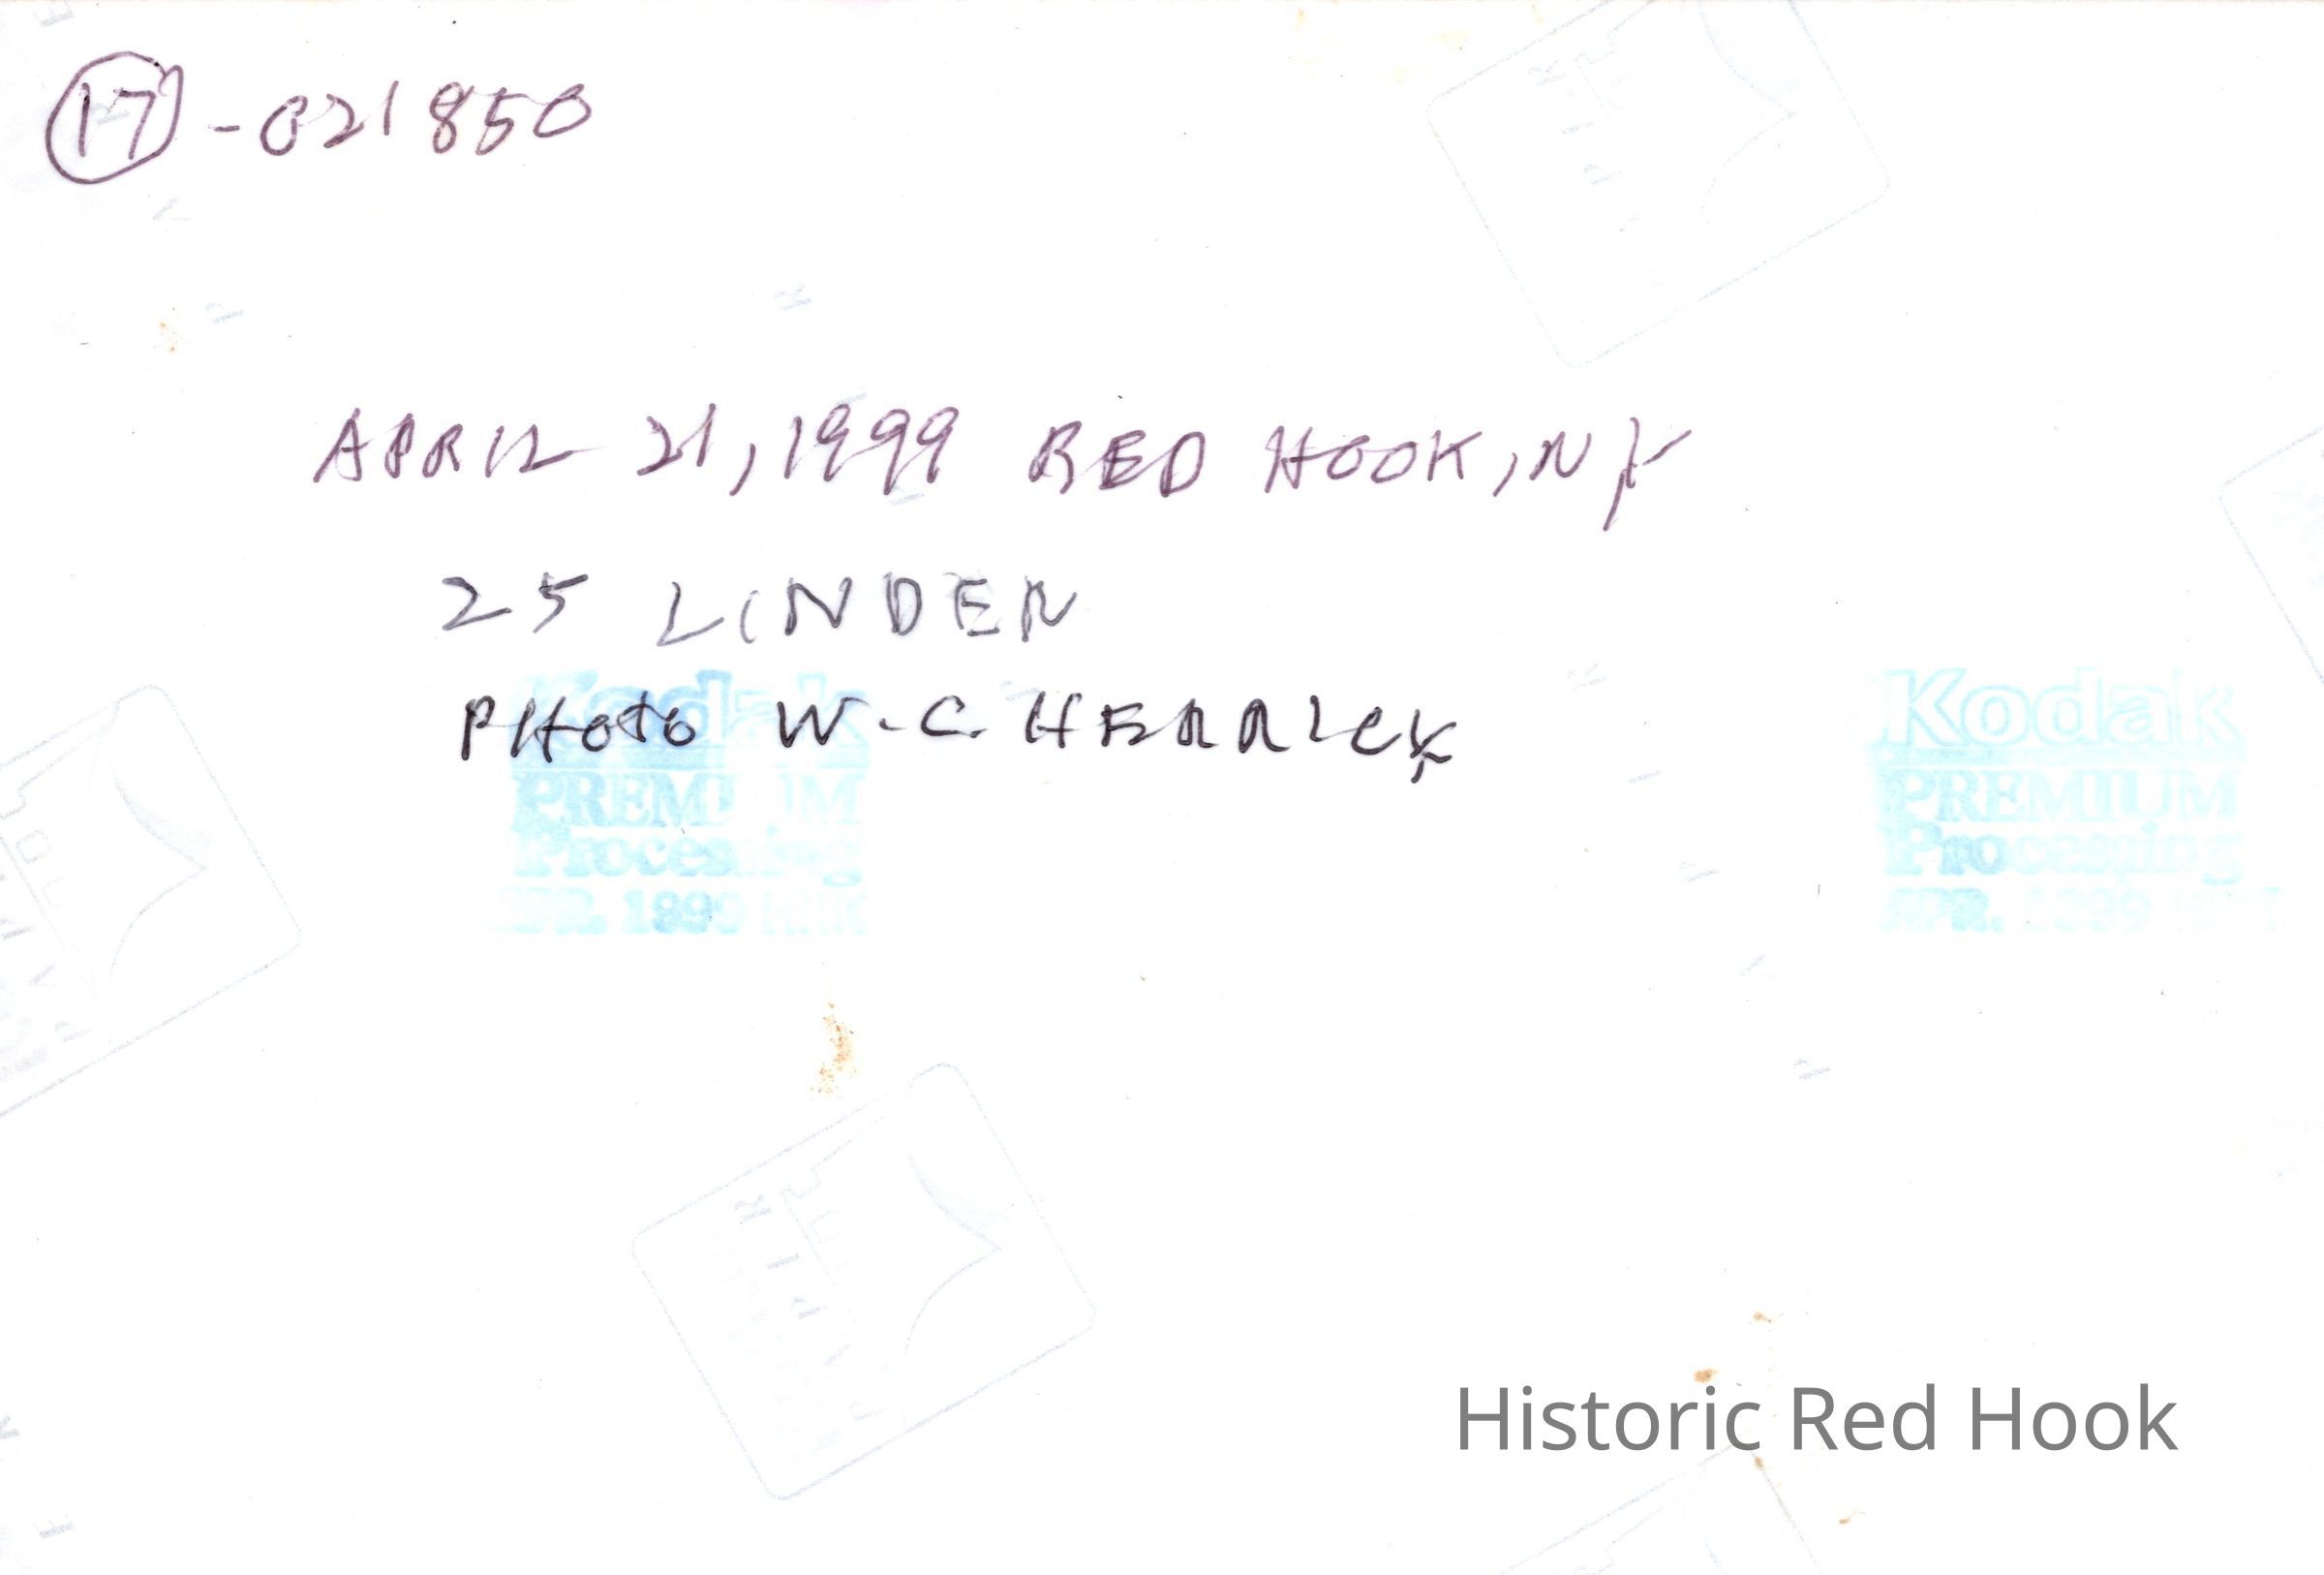 17 - 021850
APRIL 21, 1999 RED HOOK, NY
25 LINDEN
PHOTO W.C. HERRICK
Kodak
PREMIUM
Processing
APR. 1999
Kodak
PREMIUM
Processing
APR. 1999
Historic Red Hook